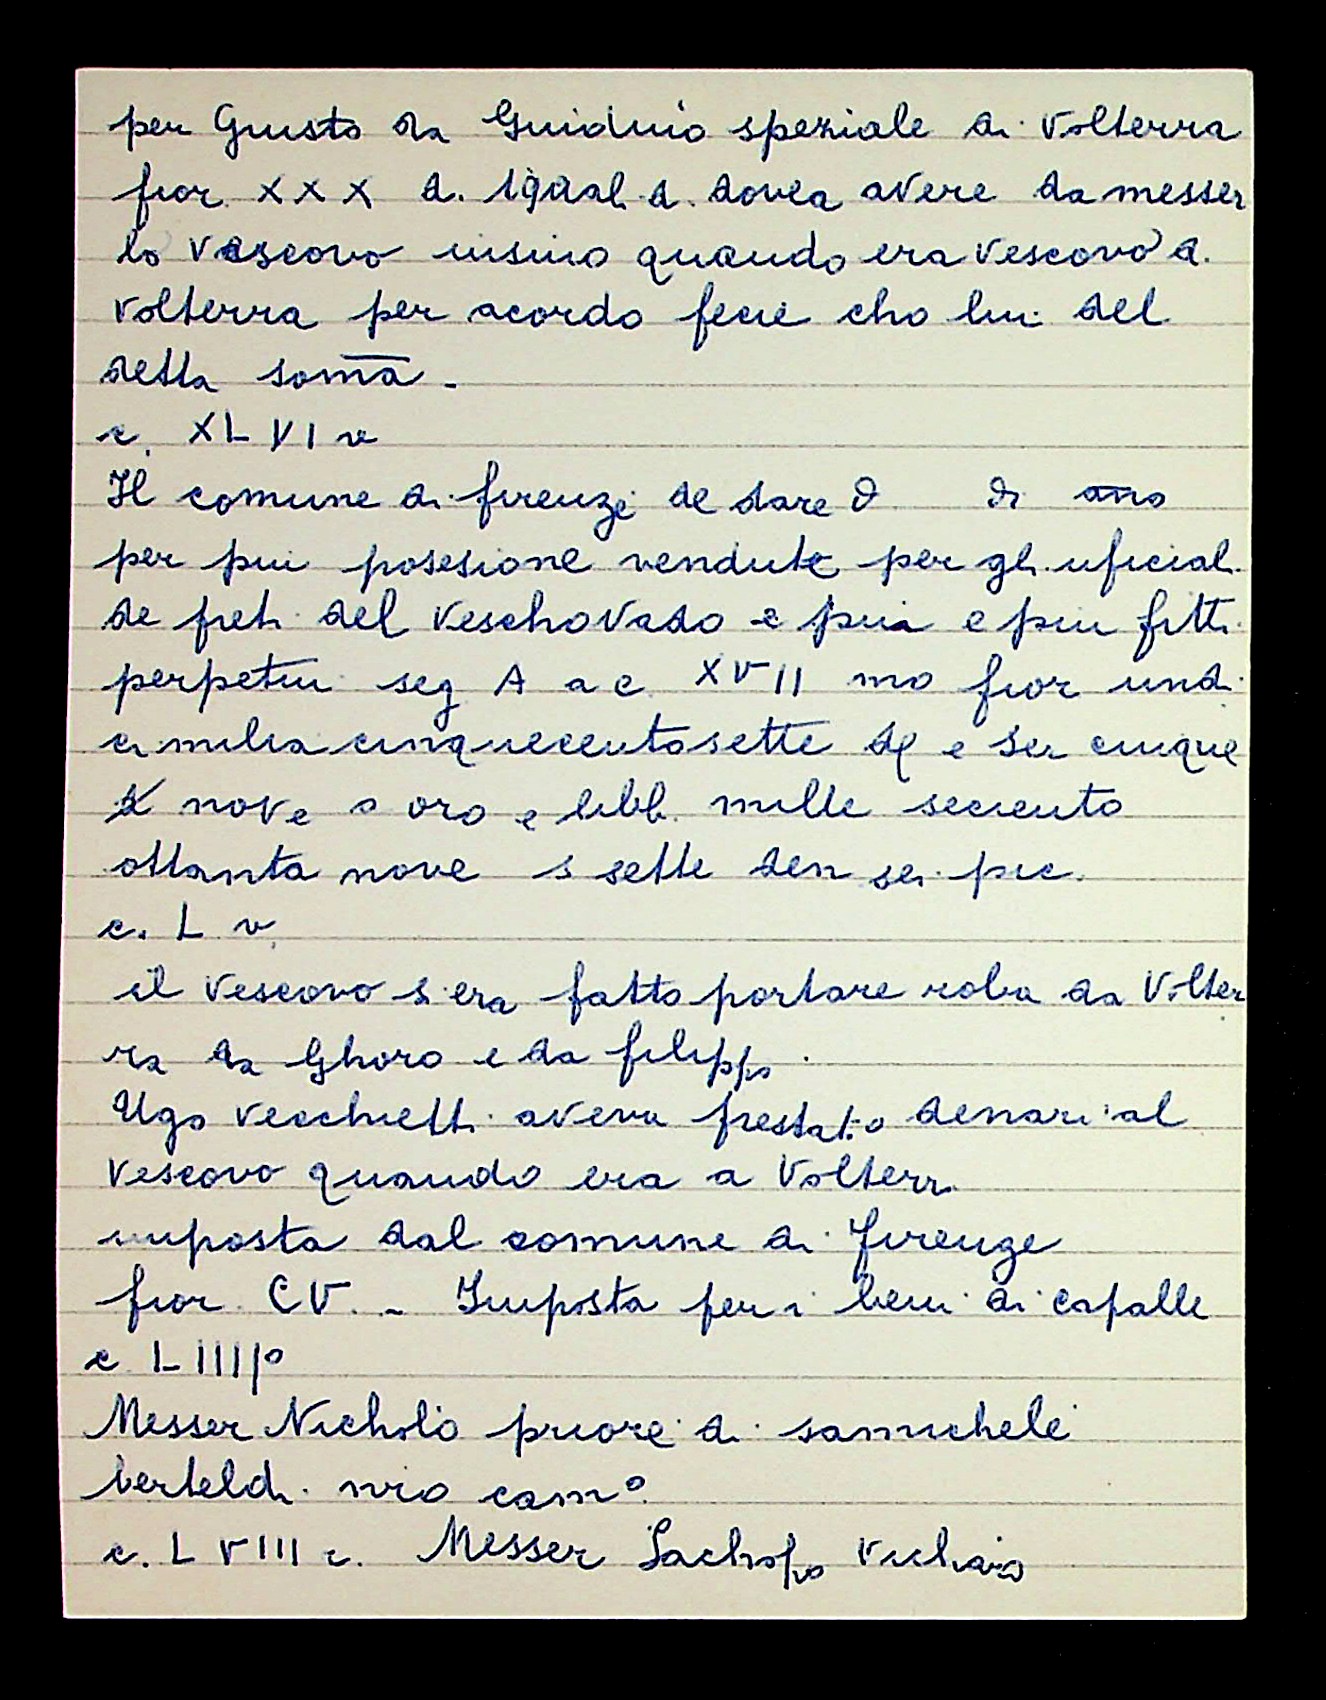 per Giusto da Guiduio speziale di Volterra
fior. XXX d. iquali d. dovea avere da messer
lo vescovo insino quando era vescovo d.
volterra per acordo fecie cho lui del
detta somā -
c. XLVI v
Il comune di firenze de dare d di año
per piu posesione vendute per gli uficiali
de preti del veschovado e piu e piu fitti
perpetui seg A a c. XVII mo fior undi
ci milia cinquecentosette e sei cinque
nove a oro e libb. mille seciento
ottanta nove s sette den sei pic.
c. L v
il vescovo s'era fatto portare roba da Volter
ra da Ghoro e da filippo.
Ugo vecchietti aveva prestato denari al
vescovo quando era a Volterra
imposta dal comune di firenze
fior. CV. - Imposta per i beni di capalle
c LIIII°
Messer Nicholò priore di samichele
berteldi nrio cam°
c. LVIII r. Messer Jachopo vichario